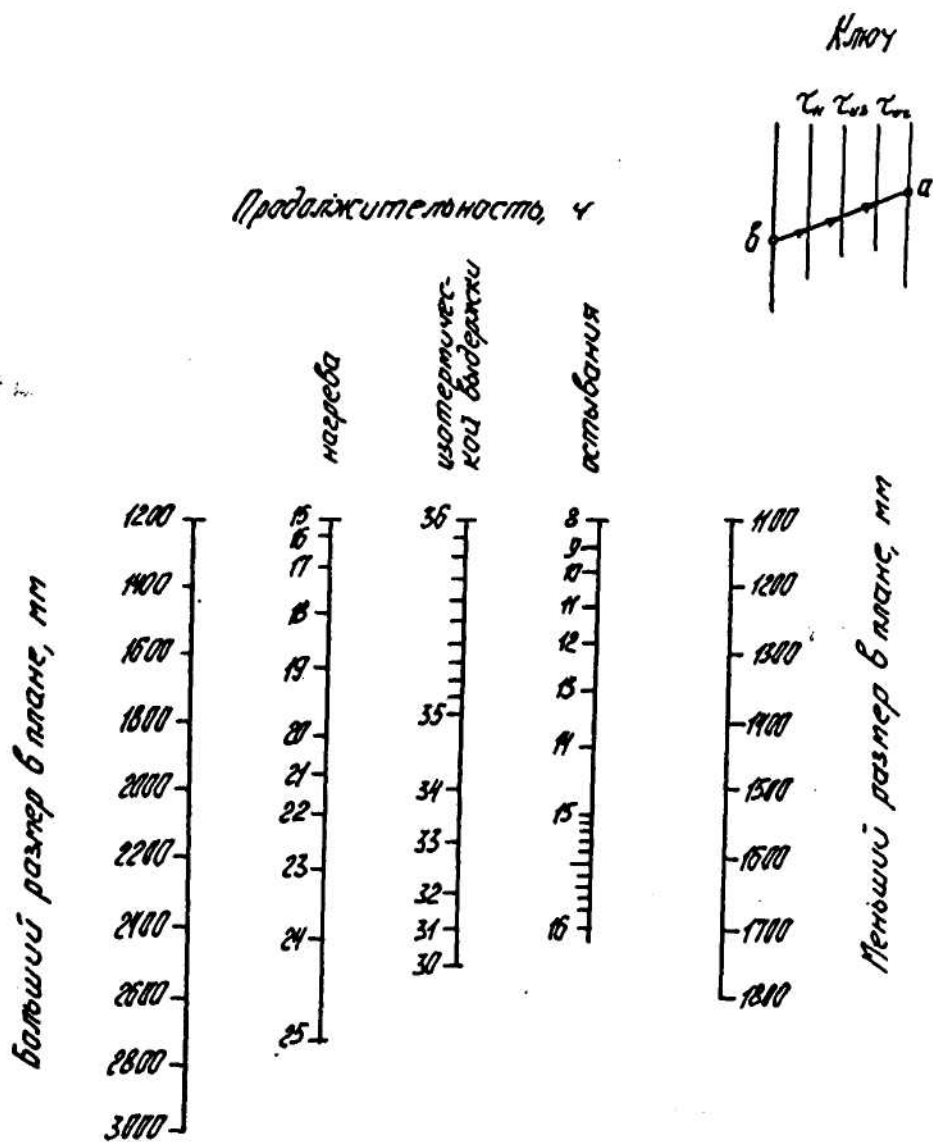 Ключ
τн τиз τос
в
а
Продолжительность, ч
нагрева
изотермичес-
кой выдержки
остывания
Больший размер в плане, мм
1200
1400
1600
1800
2000
2200
2400
2600
2800
3000
15
16
17
18
19
20
21
22
23
24
25
36
35
34
33
32
31
30
8
9
10
11
12
13
14
15
16
1100
1200
1300
1400
1500
1600
1700
1800
Меньший размер в плане, мм